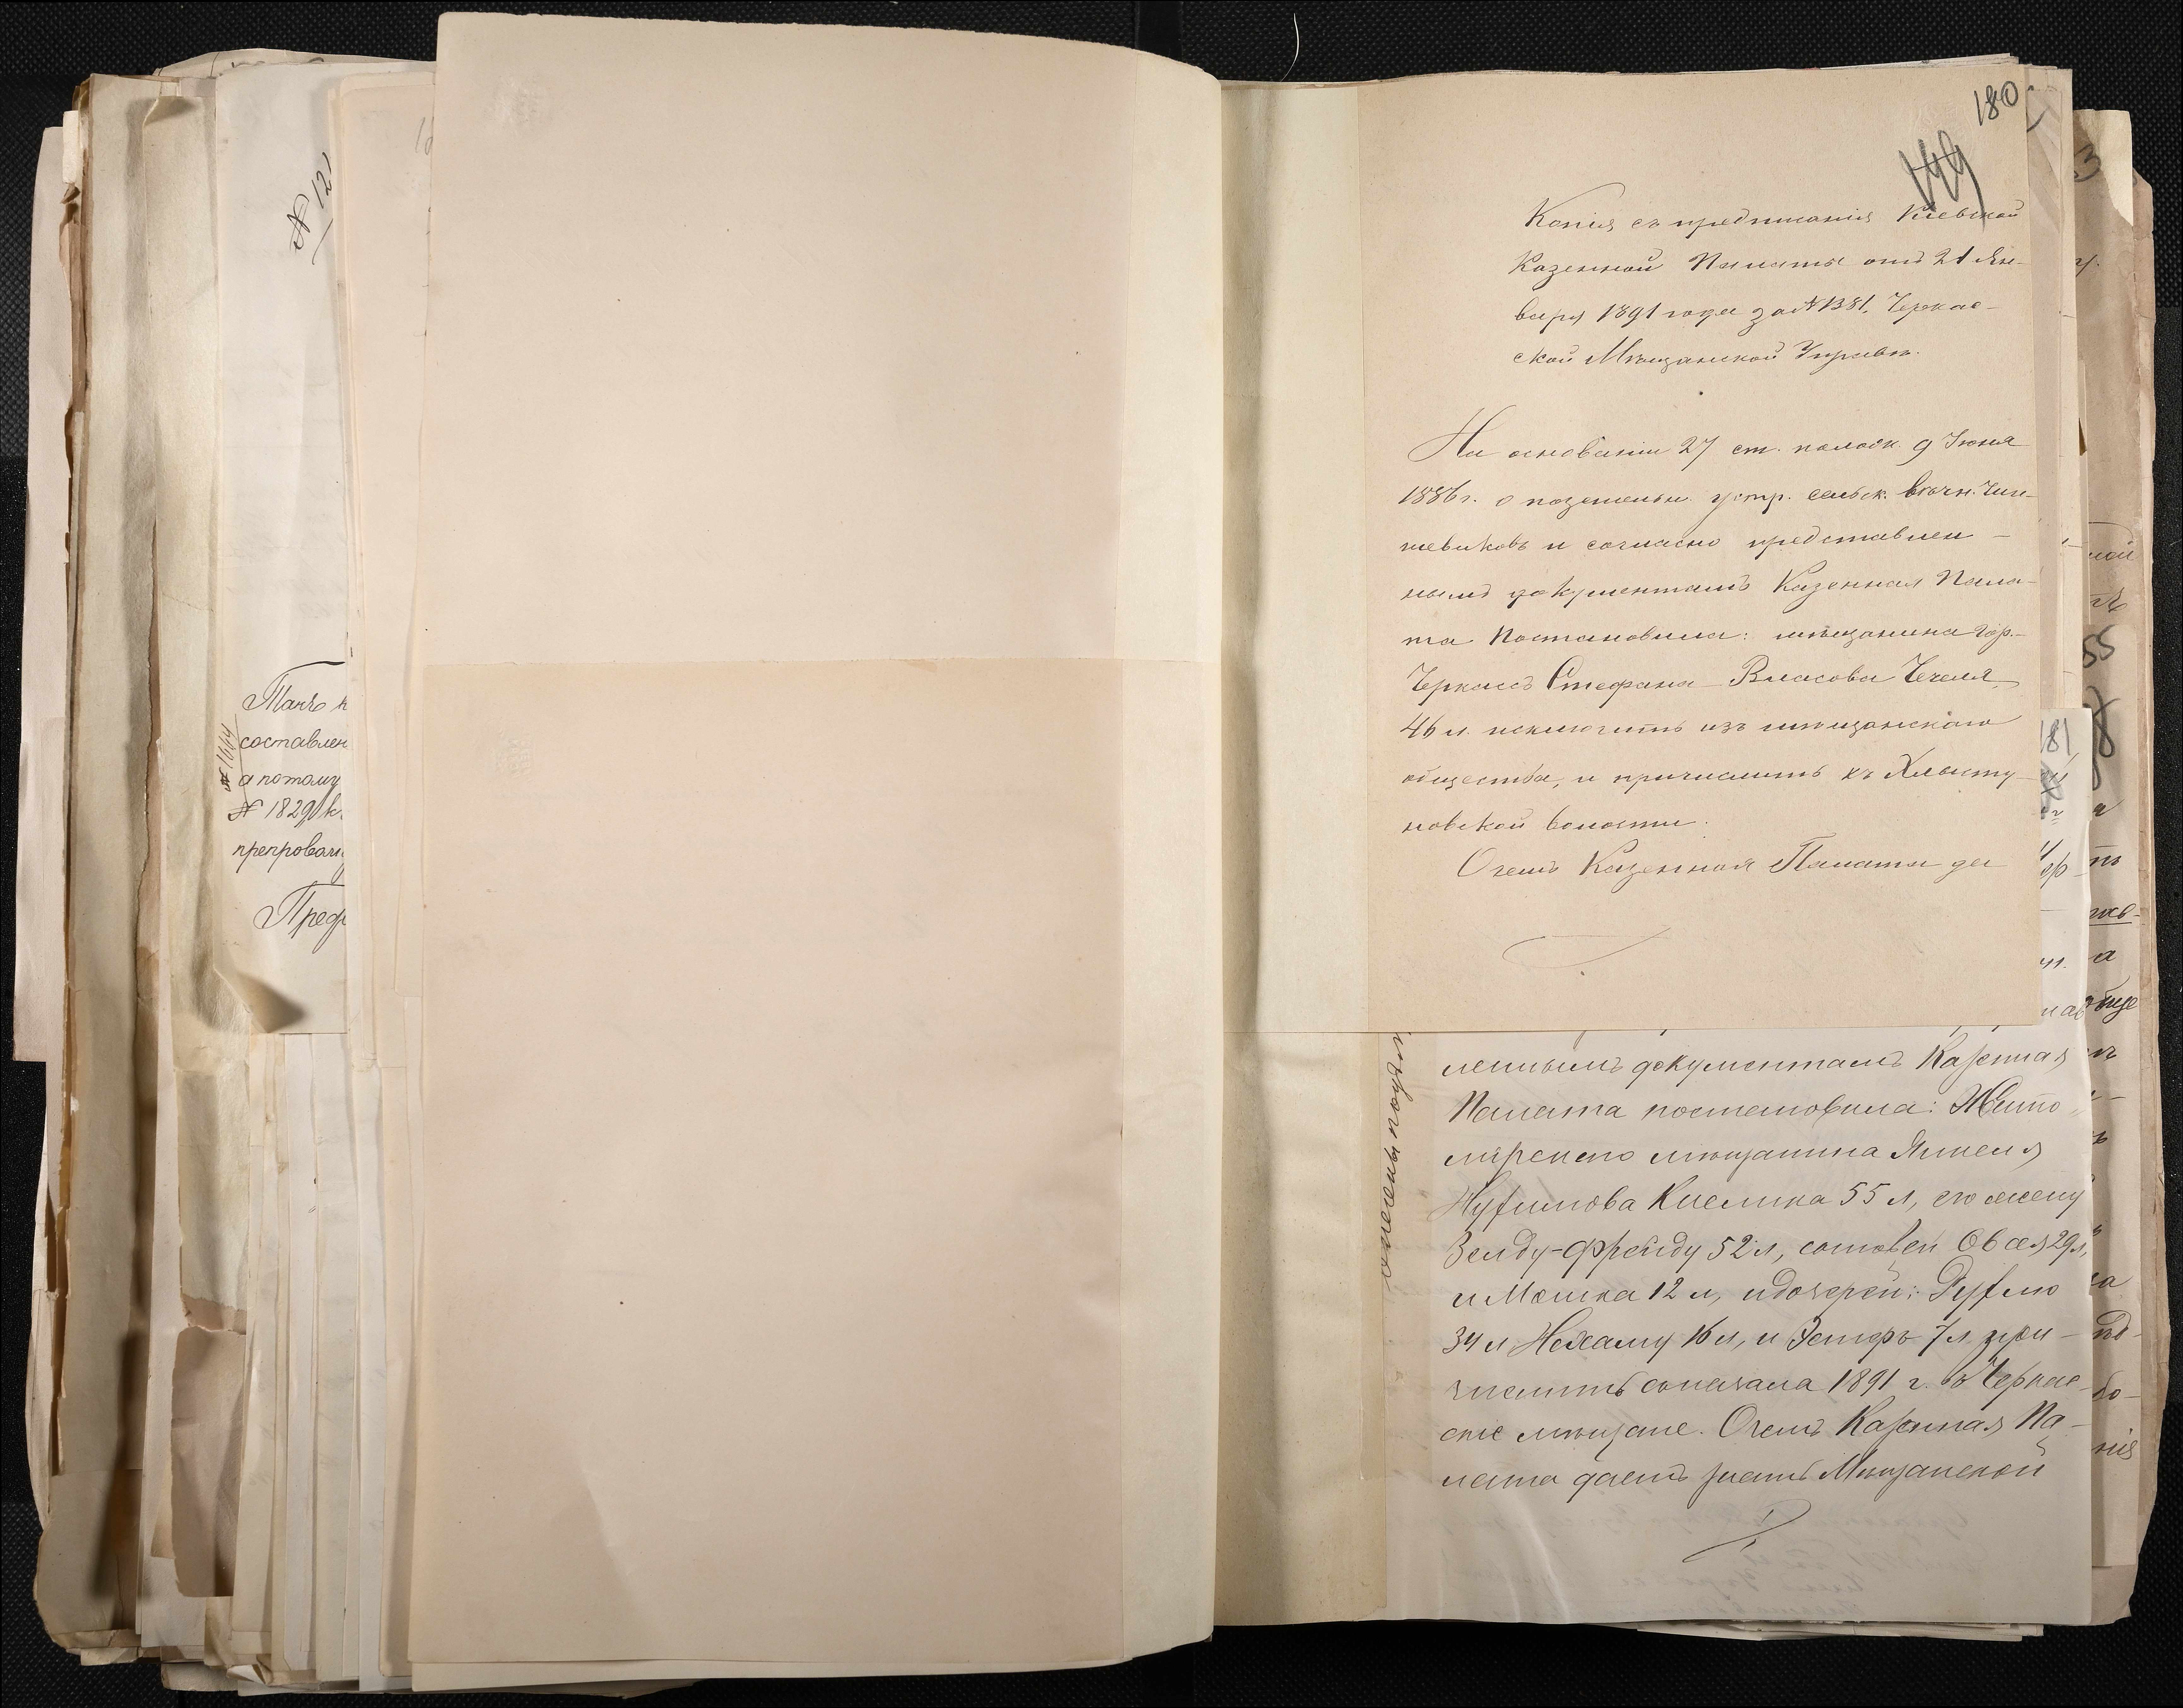 № 12
Такъ к
составлен
а потому
№ 1829 к
препровож
Пред
№ 1664
180
149
Копія съ предписанія Кіевской
Казенной Палаты отъ 21 Ян-
варя 1891 года за № 1381, Черкас-
ской Мѣщанской Управѣ.
На основаніи 27 ст. полож. 9 Іюня
1886 г. о поземельн. устр. сельск. вѣчн. чин-
шевиковъ и согласно представлен-
нымъ документамъ Казенная Пала-
та Постановила: мѣщанина гор.
Черкассъ Стефана Власова Чечеля
46 л. исключить изъ мѣщанскаго
общества, и причислить къ Хлысту-
новской волости.
О чемъ Казенная Палата да
181
леннымъ документамъ Казенная
Палата постановила: Жито
мірскаго мѣщанина Янкеля
Нухимова Киелика 55 л, его жену
Зелду-Фрейду 52 л, сыновей Овсея 29 л,
и Мошка 12 л, и дочерей: Рухлю
34 л Нехаму 16 л, и Эстфрь 7 л при-
числить съ начала 1891 г. въ Черкас-
скіе мѣщане. О чемъ Казенная Па-
лата даетъ знать Мѣщанской